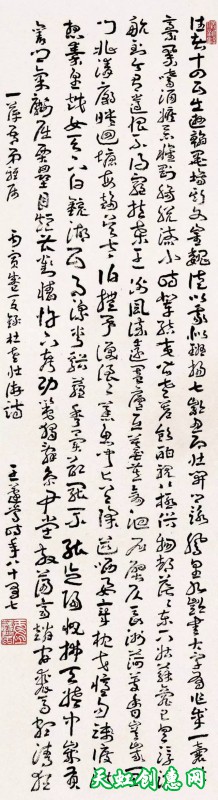 往者十四五出遊翰墨場斯文崔魏徒以我似班揚七齡思即壯開口詠鳳凰九齡書大字有作成一囊
性豪業嗜酒嫉惡懷剛腸脫略小時輩結交皆老蒼飲酣視八極俗物都茫茫東下姑蘇臺已具浮海
航到今有遺恨不得窮扶桑王謝風流遠闔廬丘墓荒劍池石壁仄長洲荷芰香嵯峨閶
門北清廟映迴塘每趨吳太伯撫事淚浪浪蒸魚聞匕首除道哂要章枕戈憶勾踐渡浙
想秦皇越女天下白鏡湖五月涼剡溪蘊秀異欲罷不能忘歸帆拂天姥中歲貢
舊鄉氣劘屈賈壘目短曹劉牆忤下考功第獨辭京尹堂放蕩齊趙間裘馬頗清狂
一萍吾弟雅屬 丙寅 夏錄杜老壯遊詩 王蘧常時年八十有七